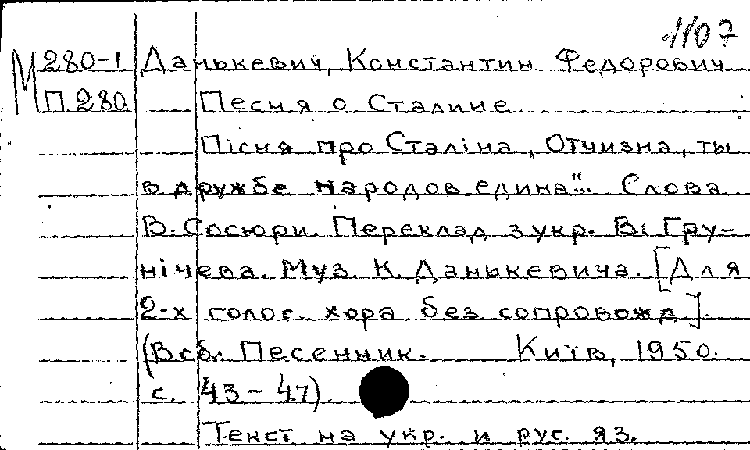 1107
М 280-1 Данькевич, Константин Федорович
П.280 Песня о Сталине
Пісня про Сталіна, Отчизна, ты
в дружбе народов едина"... Слова
В. Сосюри. Переклад з укр. В. Гру-
нічева. Муз. К. Данькевича. [Для
2-х голос. хора без сопровожд].
(В сб. Песенник. Київ, 1950.
с. 43-47)
Текст на укр. и рус. яз.